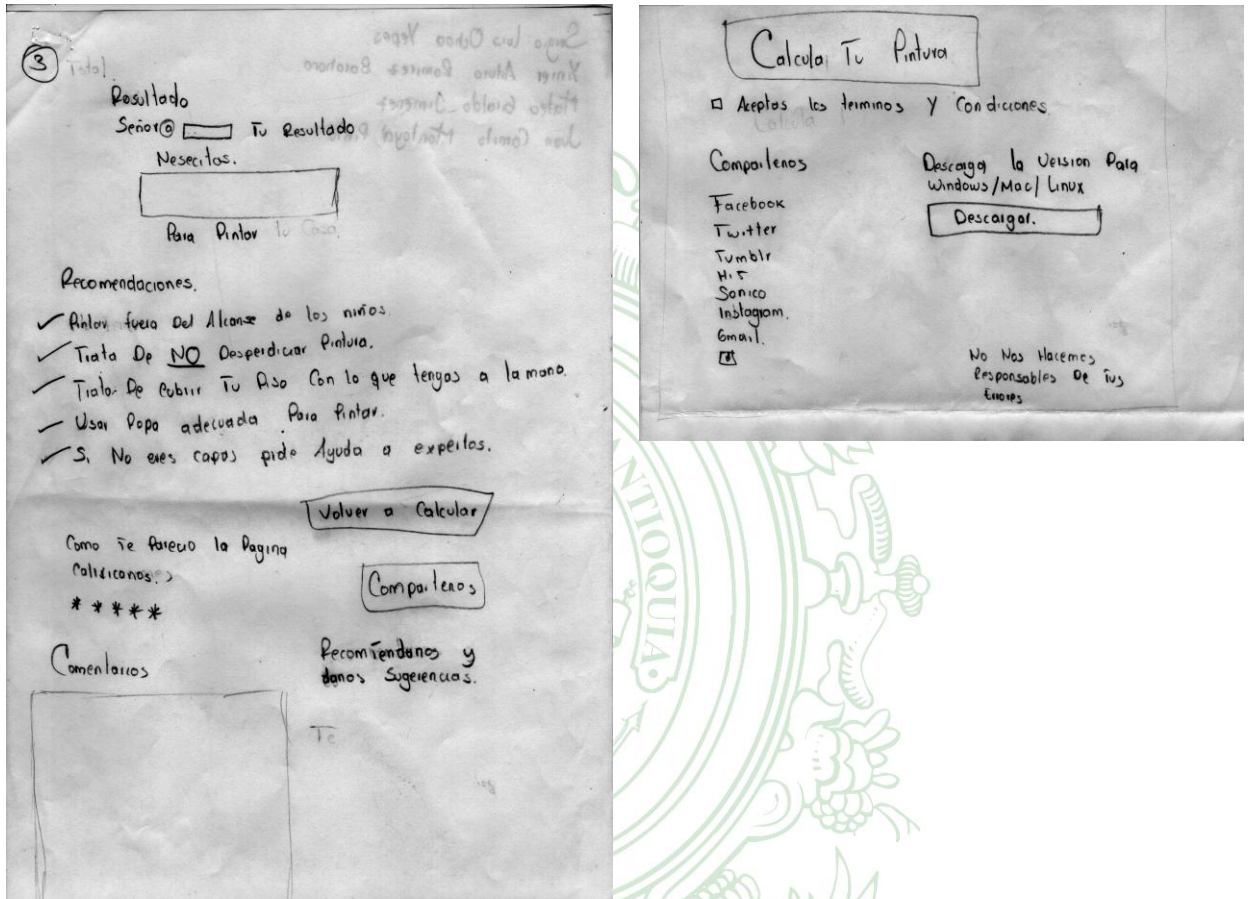 3
Total
Resultado
Señor@ Tu Resultado
Nesecitas.
Para Pintar tu Casa
Recomendaciones.
Pintar fuera Del Alcanse de los niños.
Trata De NO Desperdiciar Pintura.
Trata De cubrir Tu Piso Con lo que tengas a la mano.
Usar Ropa adecuada Para Pintar.
Si No eres capas pide Ayuda a expertos.
Volver a Calcular
Como Te Parecio la Pagina
Calificanos.
* * * * *
Compartenos
Comentarios
Recomiendanos y
danos Sugerencias.
Te
Calcula Tu Pintura
Aceptas los terminos Y Condiciones
Calcula
Compartenos
Facebook
Twitter
Tumblr
Hi5
Sonico
Instagram.
Gmail.
Descarga la Version Para
Windows/Mac/Linux
Descargar.
No Nos Hacemos
Responsables De Tus
Errores
ANTIOQUIA